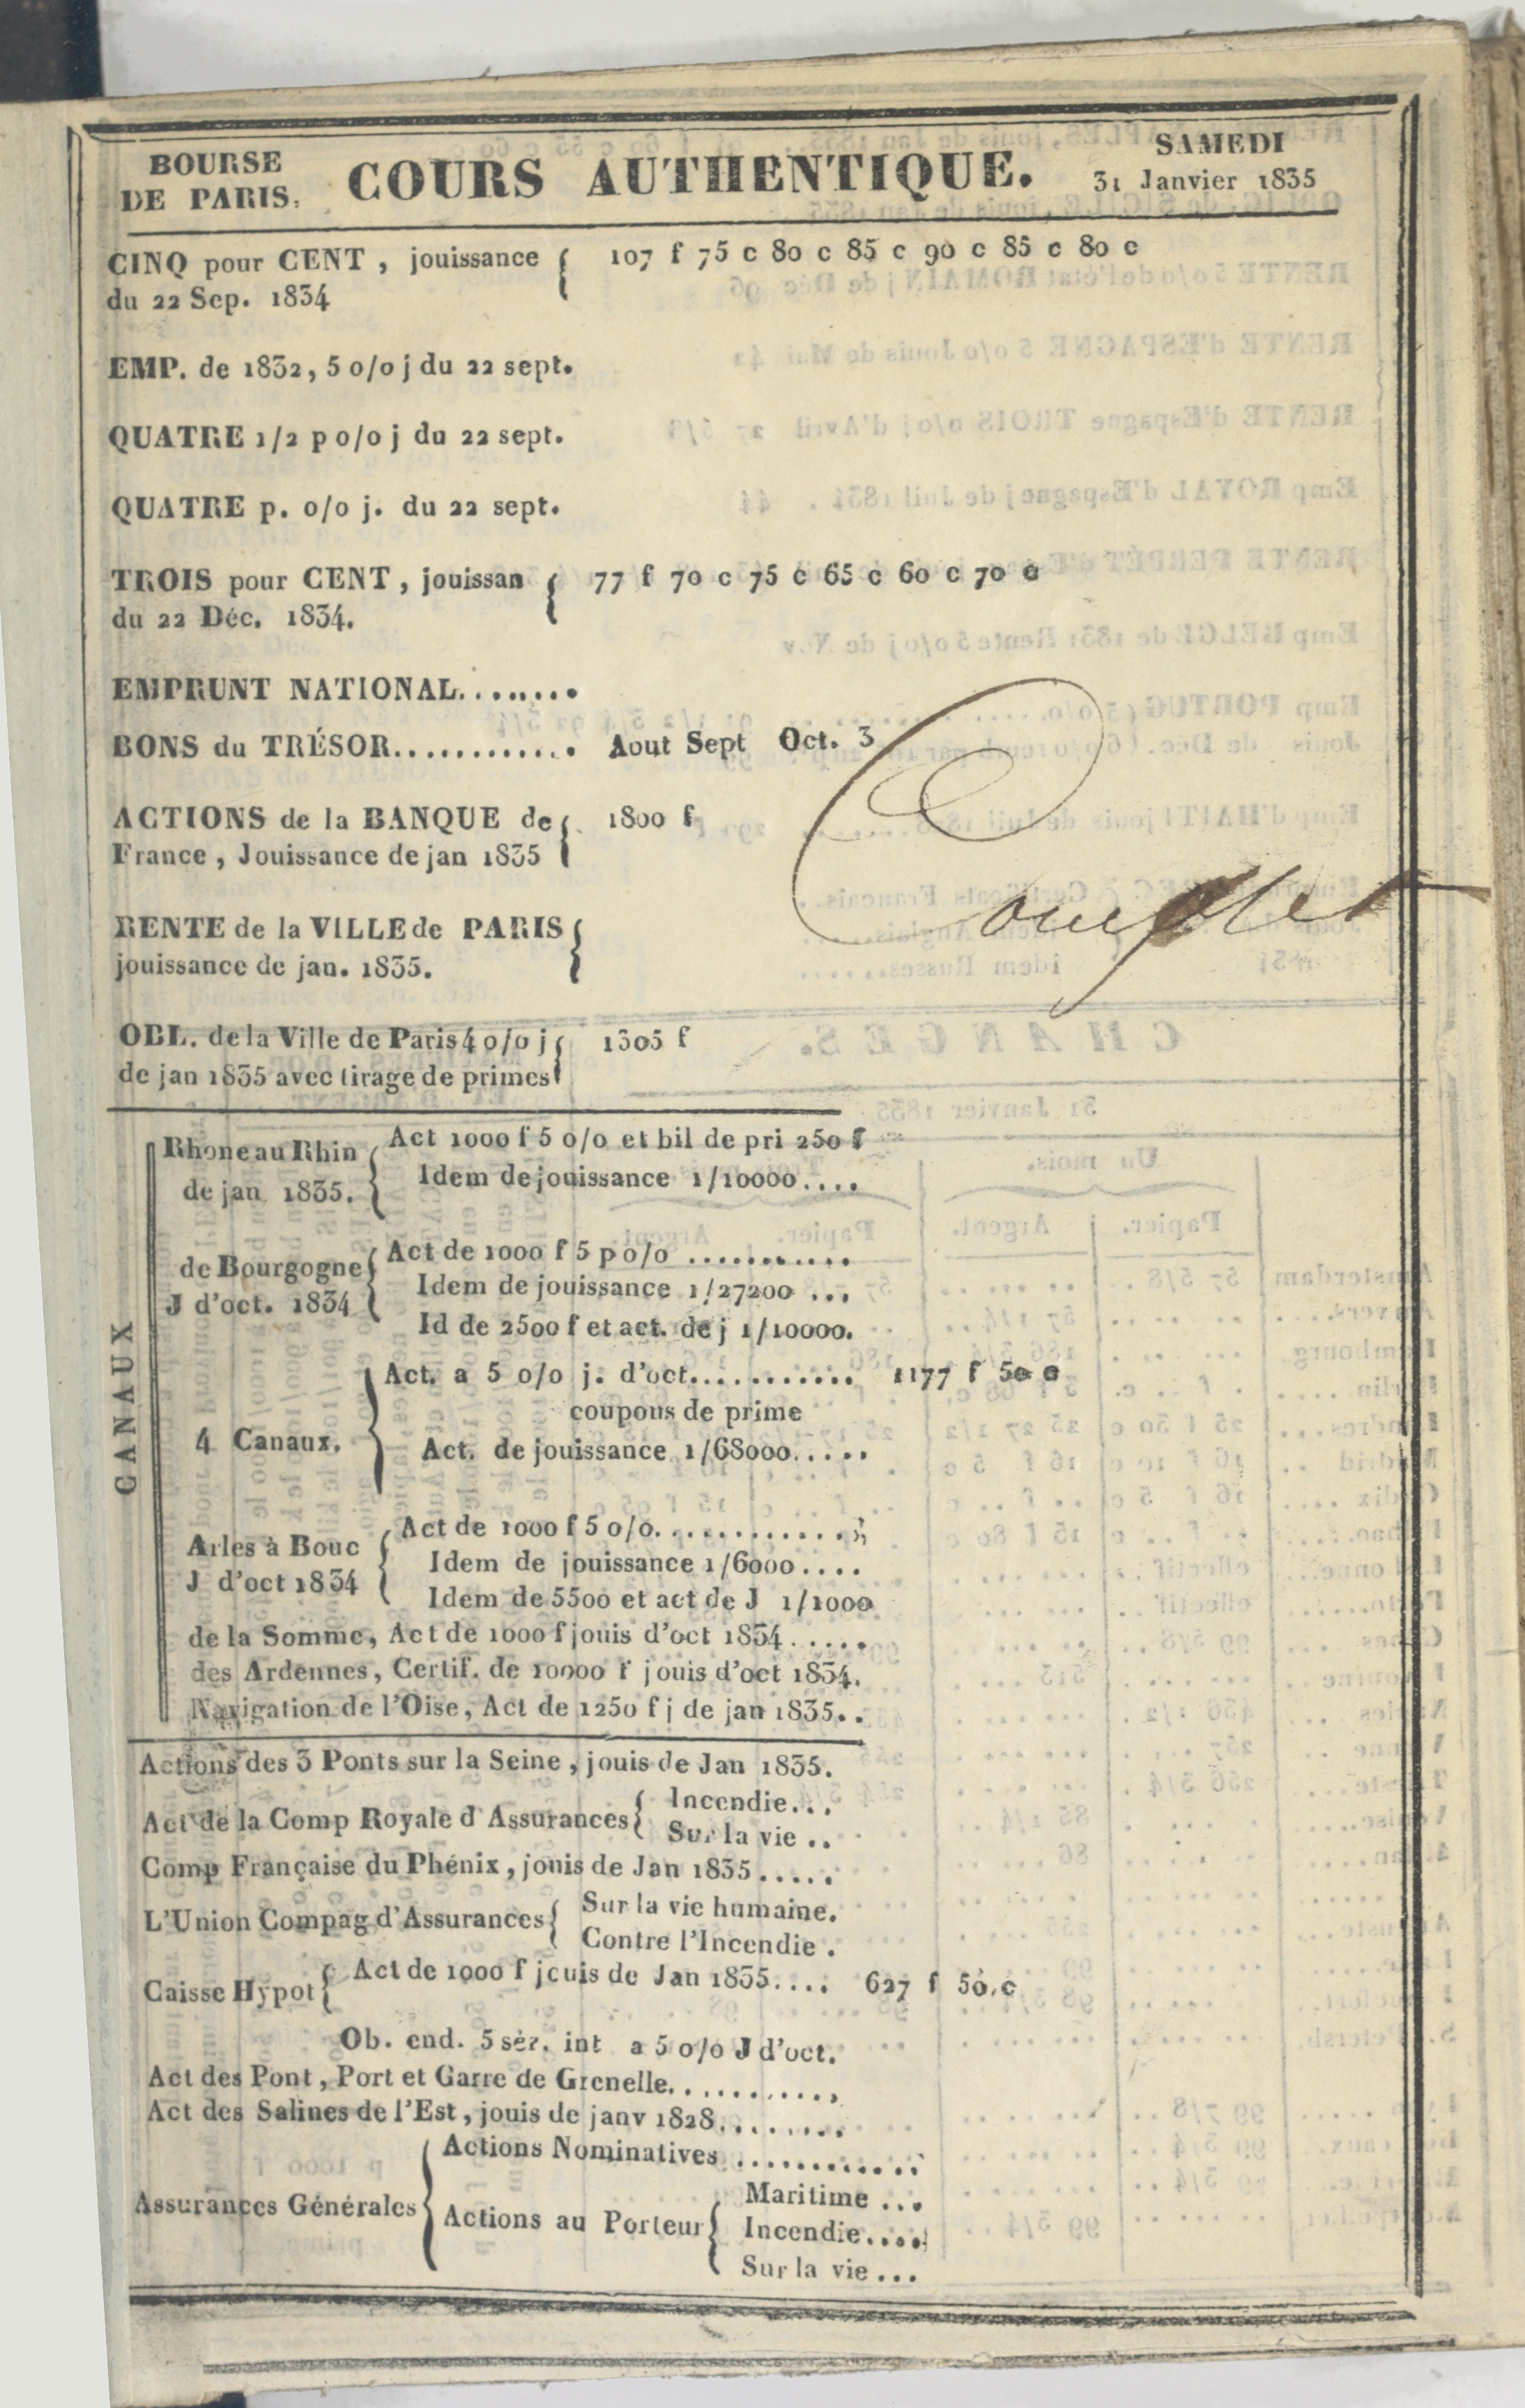 BOURSE DE PARIS. COURS AUTHENTIQUE. SAMEDI 31 Janvier 1835
CINQ pour CENT , jouissance { 107 f 75 c 80 c 85 c 90 c 85 c 80 c
du 22 Sep. 1834
EMP. de 1832, 5 o/o j du 22 sept.
QUATRE 1/2 p o/o j du 22 sept.
QUATRE p. o/o j. du 22 sept.
TROIS pour CENT , jouissan { 77 f 70 c 75 c 65 c 60 c 70 c
du 22 Déc. 1834.
EMPRUNT NATIONAL........
BONS du TRÉSOR............ Aout Sept Oct. 3
ACTIONS de la BANQUE de { 1800 f
France , Jouissance de jan 1835
Complet
RENTE de la VILLE de PARIS {
jouissance de jan. 1835.
OBL. de la Ville de Paris 4 o/o j { 1305 f
de jan 1835 avec tirage de primes
CANAUX
Rhone au Rhin { Act 1000 f 5 o/o et bil de pri 250 f
de jan 1835. Idem de jouissance 1/10000....
de Bourgogne { Act de 1000 f 5 p o/o ...........
J d'oct. 1834 Idem de jouissance 1/27200 ...
Id de 2500 f et act. de j 1/10000.
4 Canaux. { Act. a 5 o/o j. d'oct............ 1177 f 50 c
coupons de prime
Act. de jouissance 1/68000.....
Arles à Bouc { Act de 1000 f 5 o/o.............
J d'oct 1834 Idem de jouissance 1/6000....
Idem de 5500 et act de J 1/1000
de la Somme, Act de 1000 f jouis d'oct 1834.....
des Ardennes, Certif. de 10000 f jouis d'oct 1834.
Navigation de l'Oise, Act de 1250 f j de jan 1835..
Actions des 3 Ponts sur la Seine , jouis de Jan 1835.
Act de la Comp Royale d Assurances { Incendie...
Sur la vie ..
Comp Française du Phénix , jouis de Jan 1835.....
L'Union Compag d'Assurances { Sur la vie humaine.
Contre l'Incendie .
Caisse Hypot { Act de 1000 f jouis de Jan 1835.... 627 f 50 c
Ob. end. 5 sèr. int a 5 o/o J d'oct.
Act des Pont , Port et Garre de Grenelle...........
Act des Salines de l'Est , jouis de janv 1828........
Assurances Générales { Actions Nominatives ............
Actions au Porteur { Maritime ...
Incendie....
Sur la vie ...